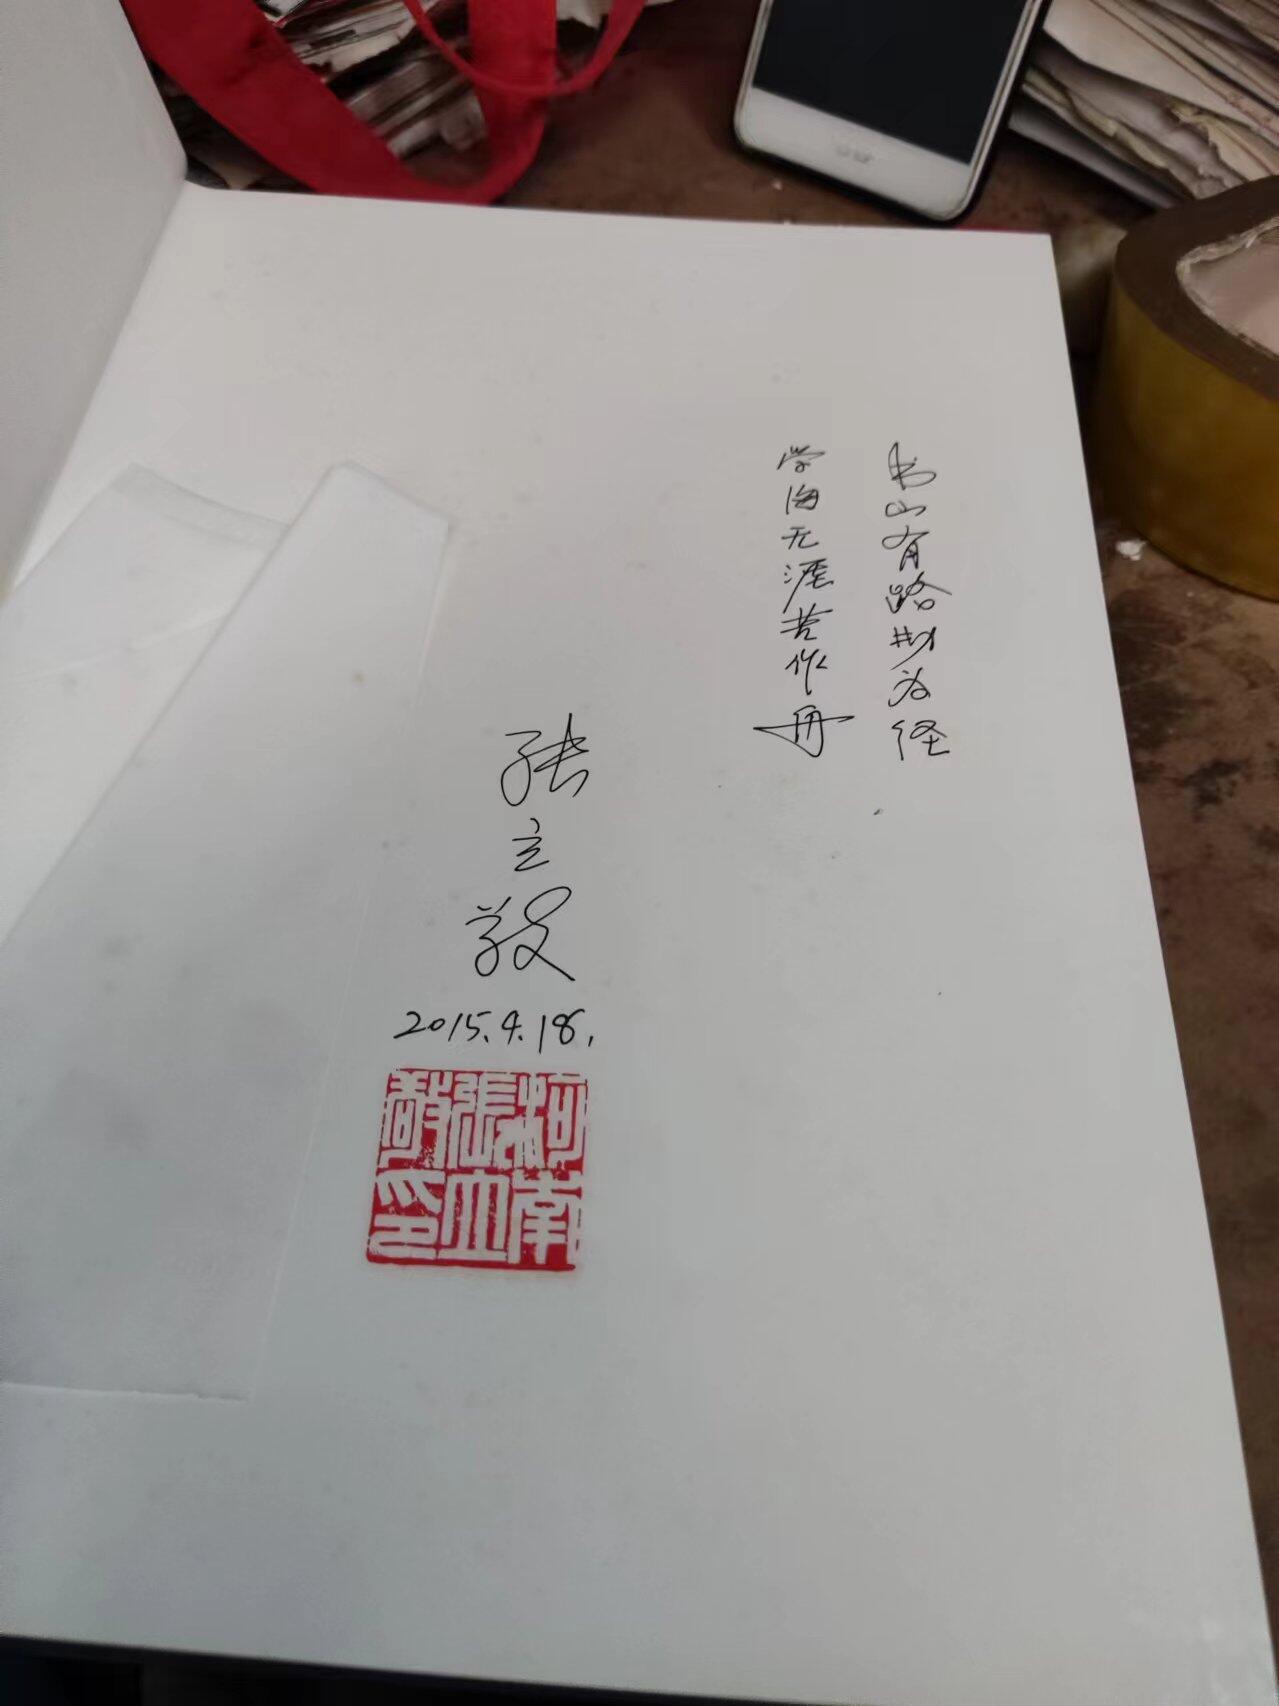 书山有路勤为径
学海无涯苦作舟
张立敬
2015.4.18.
柯南
張立
敬印